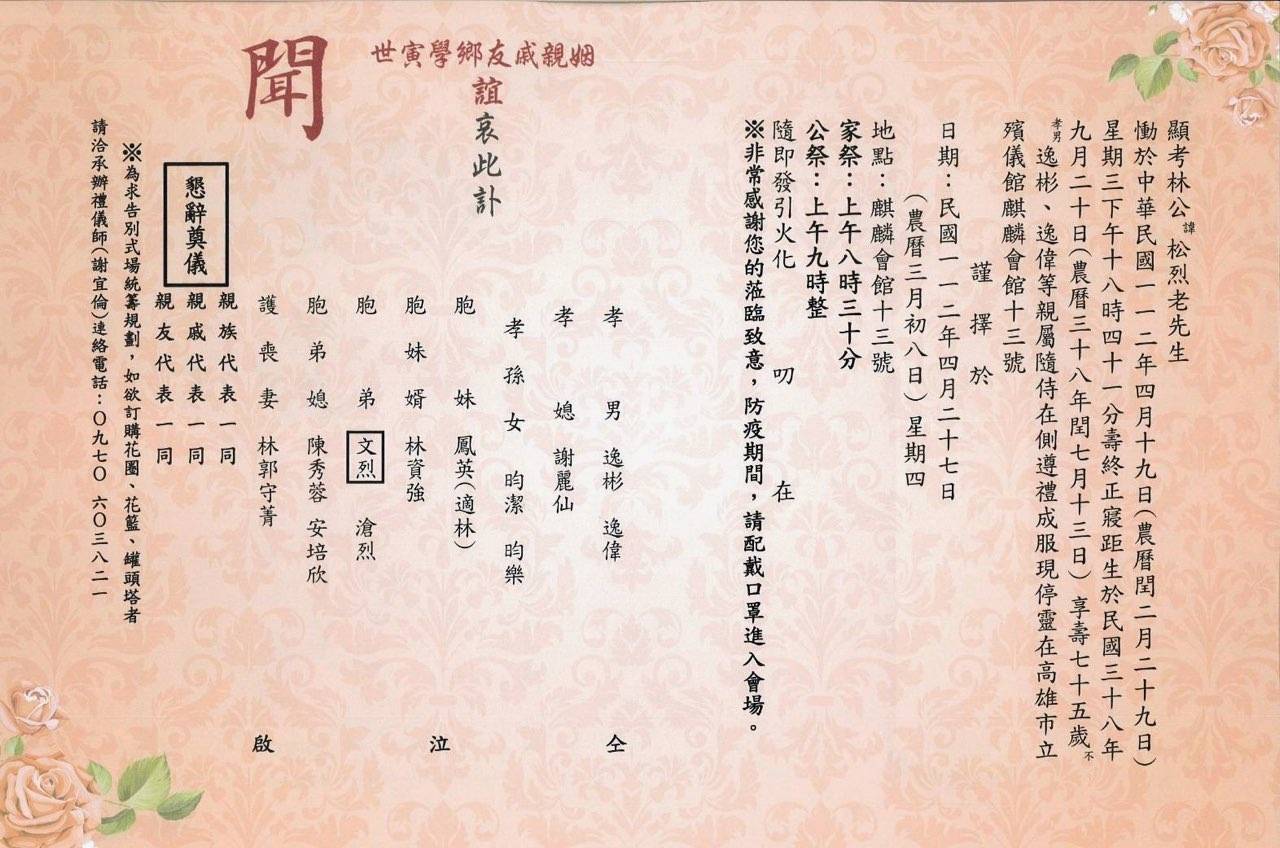 顯考林公諱松烈老先生
慟於中華民國一一二年四月十九日(農曆閏二月二十九日)
星期三下午十八時四十一分壽終正寢距生於民國三十八年
九月二十日(農曆三十八年閏七月十三日)享壽七十五歲不
孝男逸彬、逸偉等親屬隨侍在側遵禮成服現停靈在高雄市立
殯儀館麒麟會館十三號
謹擇於
日期：民國一一二年四月二十七日
(農曆三月初八日)星期四
地點：麒麟會館十三號
家祭：上午八時三十分
公祭：上午九時整
隨即發引火化 叨在
※非常感謝您的蒞臨致意，防疫期間，請配戴口罩進入會場。
世寅學鄉友戚親姻
誼哀此訃
聞
孝男 逸彬 逸偉
孝媳 謝麗仙
孝孫女 昀潔 昀樂
胞妹 鳳英(適林)
胞妹婿 林資強
胞弟 文烈 滄烈
胞弟媳 陳秀蓉 安培欣
護喪妻 林郭守菁
仝泣啟
親族代表一同
親戚代表一同
親友代表一同
懇辭奠儀
※為求告別式場統籌規劃，如欲訂購花圈、花籃、罐頭塔者
請洽承辦禮儀師(謝宜倫)連絡電話：０９７０ ６０３８２１